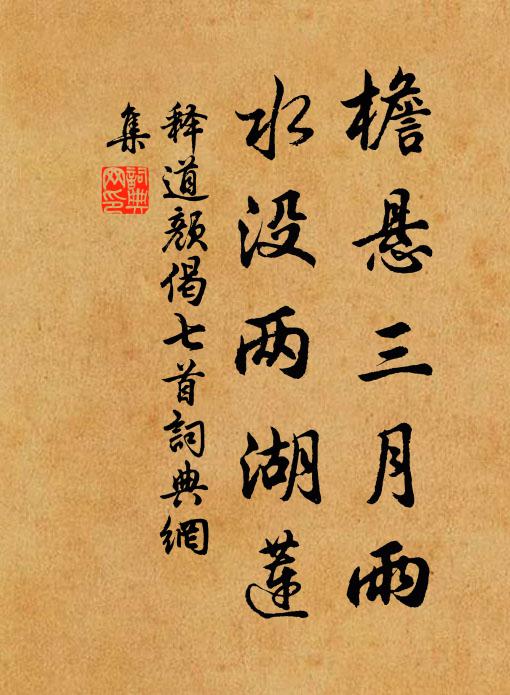 檐悬三月雨
水没两湖莲
释道颜偈七首詞典網
集
詞典网印